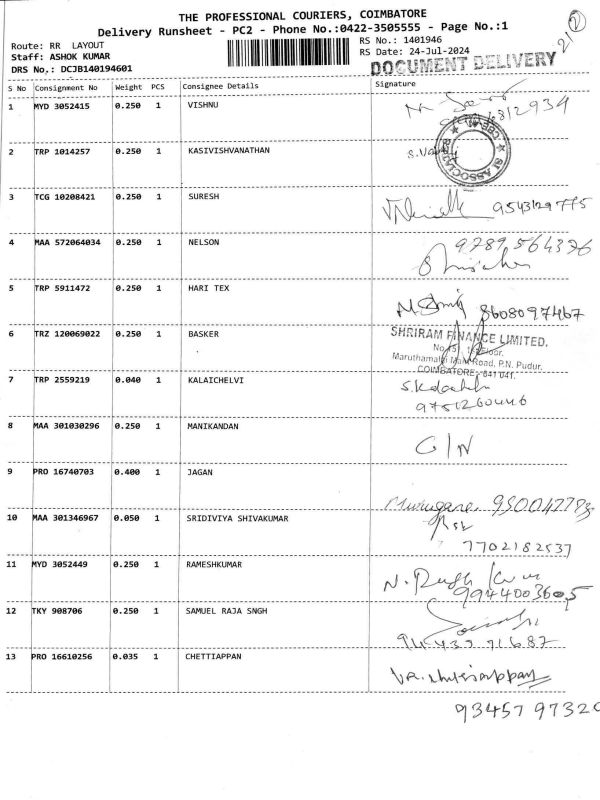 THE PROFESSIONAL COURIERS, COIMBATORE
Delivery Runsheet - PC2 - Phone No.:0422-3505555 - Page No.:1
Route: RR LAYOUT
Staff: ASHOK KUMAR
DRS No.: DCJB140194601
RS No.: 1401946
RS Date: 24-Jul-2024
DOCUMENT DELIVERY
S No Consignment No Weight PCS Consignee Details Signature
1 MYD 3052415 0.250 1 VISHNU
2 TRP 1014257 0.250 1 KASIVISHVANATHAN
3 TCG 10208421 0.250 1 SURESH
9543129775
4 MAA 572064034 0.250 1 NELSON
9789564376
5 TRP 5911472 0.250 1 HARI TEX
8608097467
6 TRZ 120069022 0.250 1 BASKER
SHRIRAM FINANCE LIMITED.
Floor.
Road, P.N. Pudur,
COIMBATORE - 641 041.
7 TRP 2559219 0.040 1 KALAICHELVI
9751260446
8 MAA 301030296 0.250 1 MANIKANDAN
G/N
9 PRO 16740703 0.400 1 JAGAN
Murugane
10 MAA 301346967 0.050 1 SRIDIVIYA SHIVAKUMAR
7702182537
11 MYD 3052449 0.250 1 RAMESHKUMAR
9944003605
12 TKY 908706 0.250 1 SAMUEL RAJA SNGH
13 PRO 16610256 0.035 1 CHETTIAPPAN
93457 97320